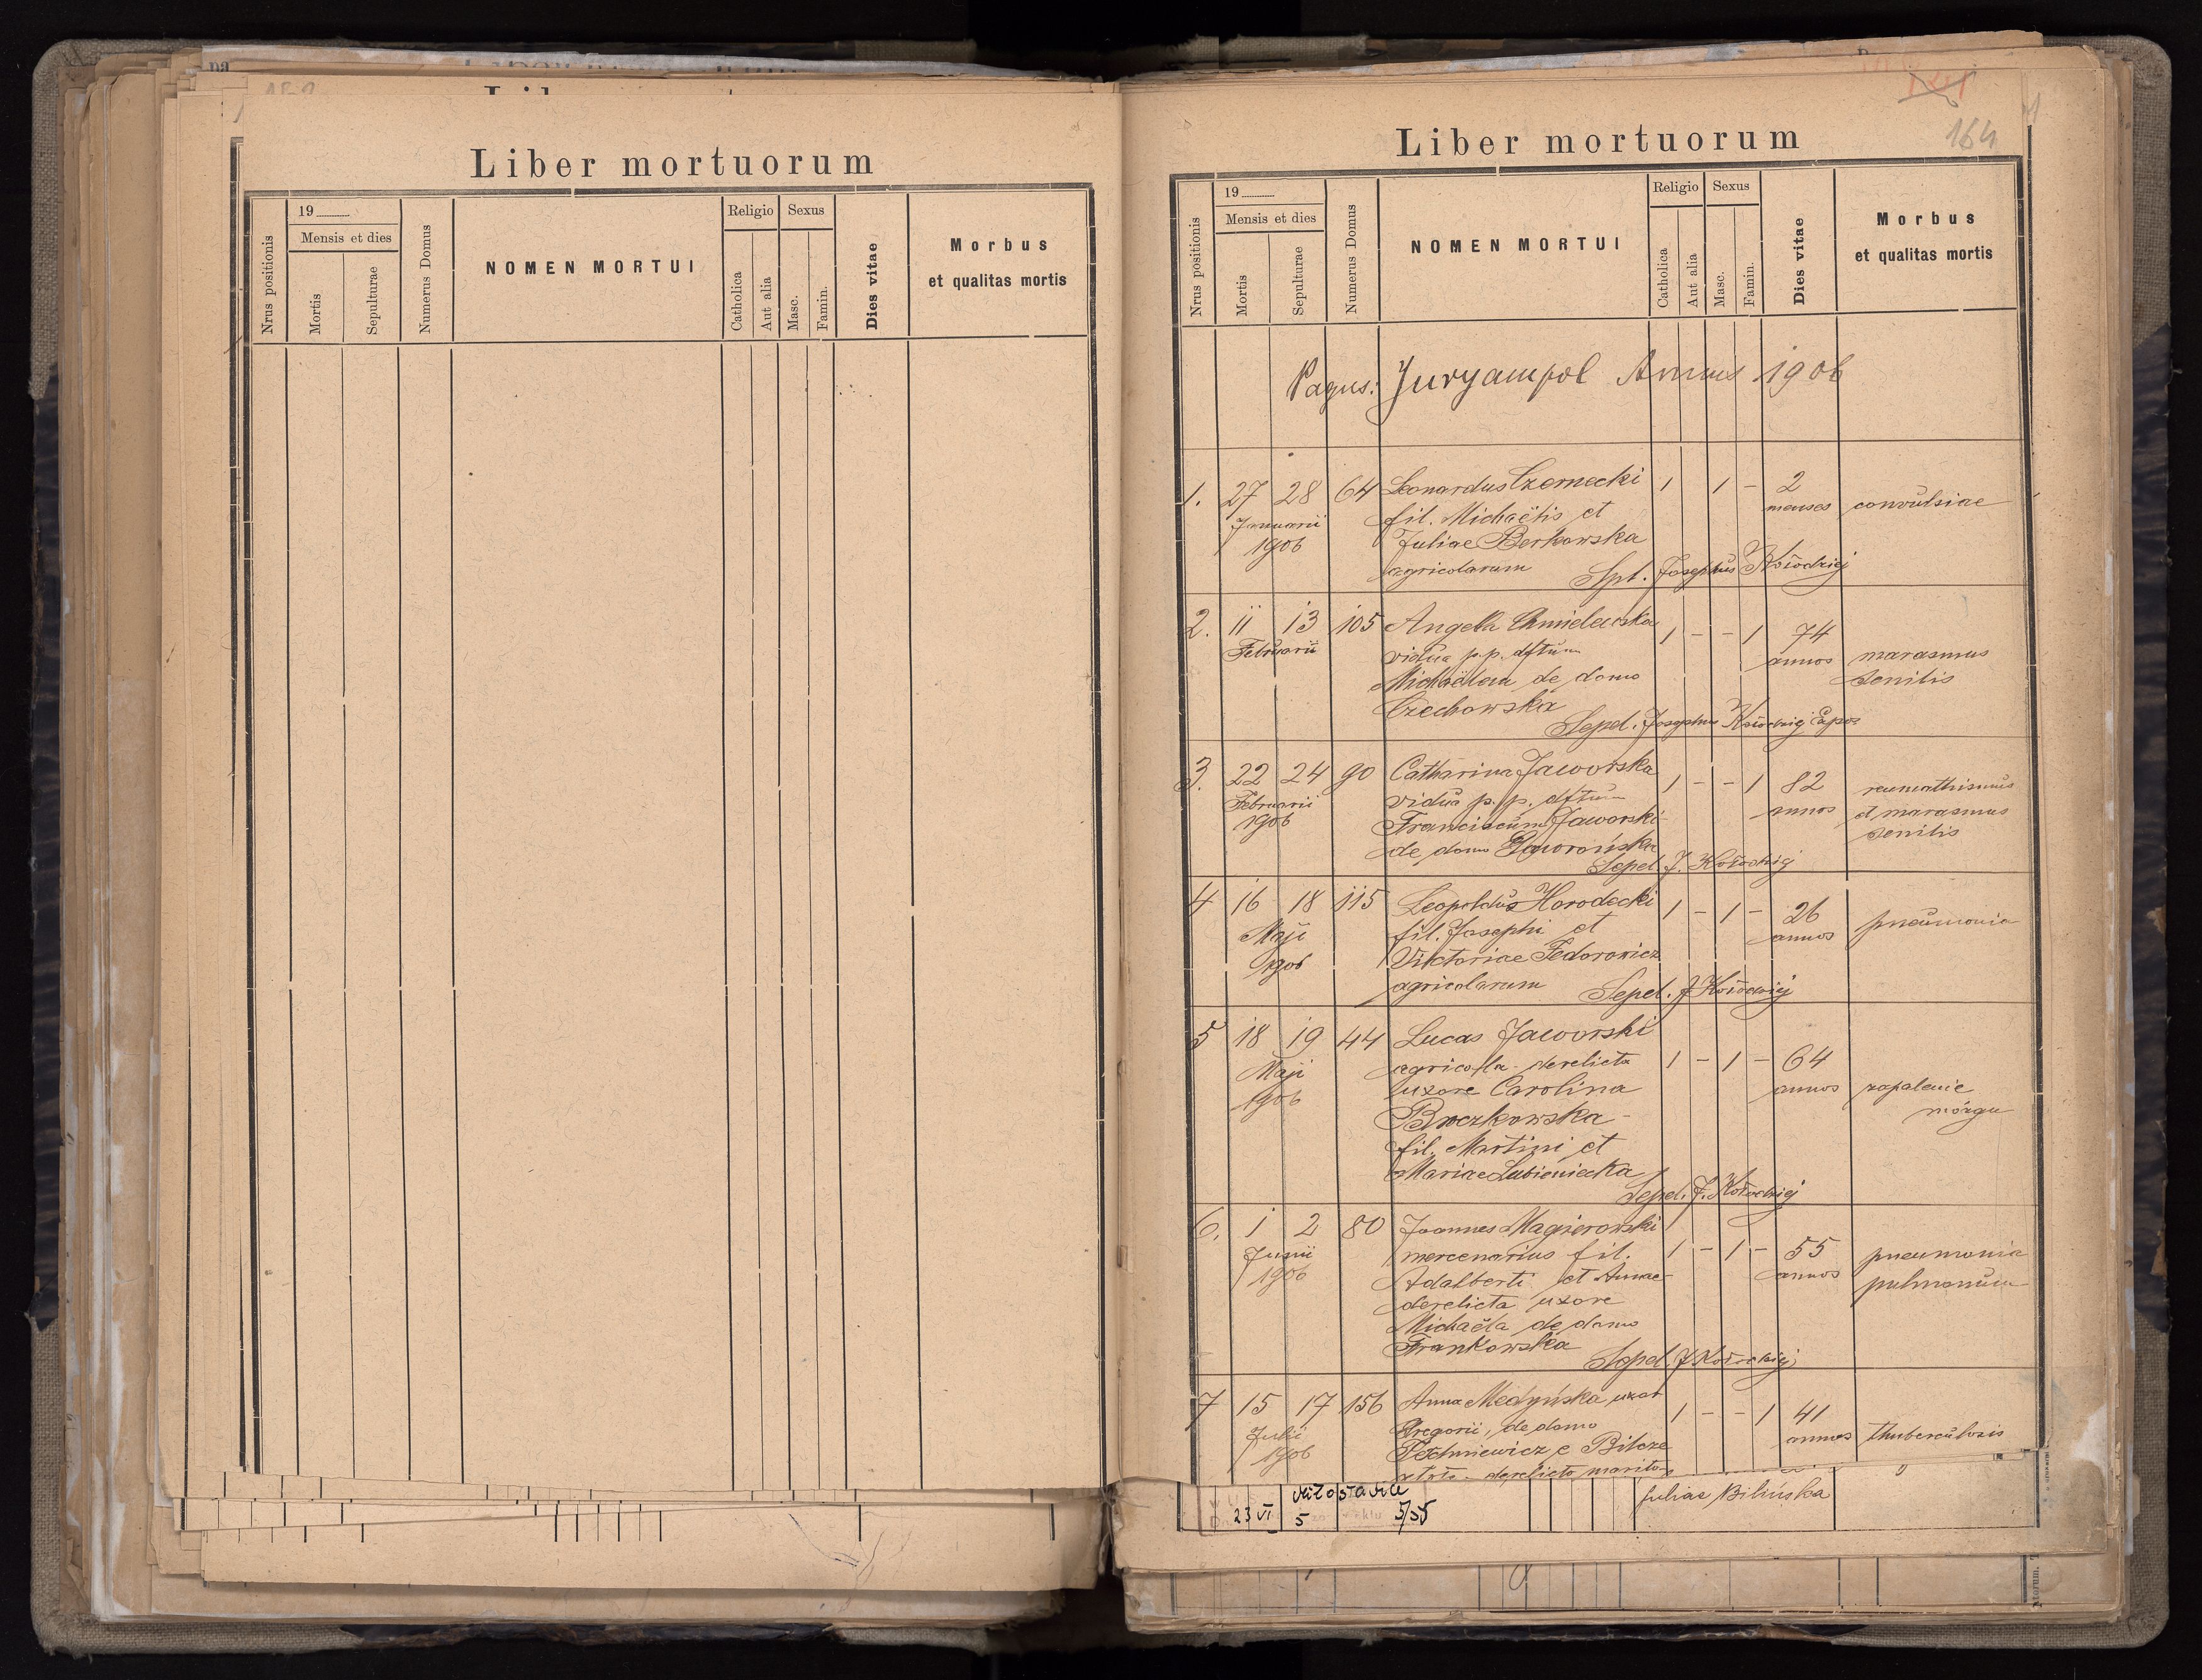 Liber mortuorum
19
Mensis et dies
Nrus positionis
Mortis
Sepulturae
Numerus Domus
NOMEN MORTUI
Religio
Catholica
Aut alia
Sexus
Masc.
Famin.
Dies vitae
Morbus
et qualitas mortis
164
Liber mortuorum
19
Mensis et dies
Nrus positionis
Mortis
Sepulturae
Numerus Domus
NOMEN MORTUI
Religio
Catholica
Aut alia
Sexus
Masc.
Famin.
Dies vitae
Morbus
et qualitas mortis
Pagus: Juryampol Annus 1906
1. 27 28 64 Leonardus Czernecki 1 1 - 2
Januarii fil. Michaëlis et menses convulsiae
1906 Juliae Berkowska
agricolarum Spt. Josephus Kołodziej
2. 11 13 105 Angela Chmielewska 1 - - 1 74
Februarii vidua p.p. dftum annos marasmus
Michaëlem de domo senilis
Czechowska
Sepel. Josephus Kołodziej Expos
3. 22 24 90 Catharina Jaworska 1 - - 1 82 reumathismus
Februarii vidua p.p. dftum annos et marasmus
1906 Franciscum Jaworski senilis
de domo Gaworońska
Sepel. J. Kołodziej
4 16 18 115 Leopoldus Horodecki 1 - 1 - 26 pneumonia
Maji fil. Josephi et annos
1906 Victoriae Fedorowicz
agricolarum Sepel. J Kołodziej
5 18 19 44 Lucas Jaworski
Maji agricola derelicta 1 - 1 - 64
1906 uxore Carolina annos zapalenie
Broczkowska mózgu
fil. Martini et
Mariae Lubieniecka
Sepel. J. Kołodziej
6. 1 2 80 Joannes Magierowski
Junii mercenarius fil. 1 - 1 - 55 pneumonia
1906 Adalberti et Annae annos pulmonum
derelicta uxore
Michaëla de domo
Frankowska
Sepel. J Kołodziej
7 15 17 156 Anna Medyńska uxor 1 - - 1 41
Julii Gregorii, de domo annos thuberculosis
1906 Techniewicz e Bilcze
derelicto marito
23 VI 5 5/35
Juliae Bilińska